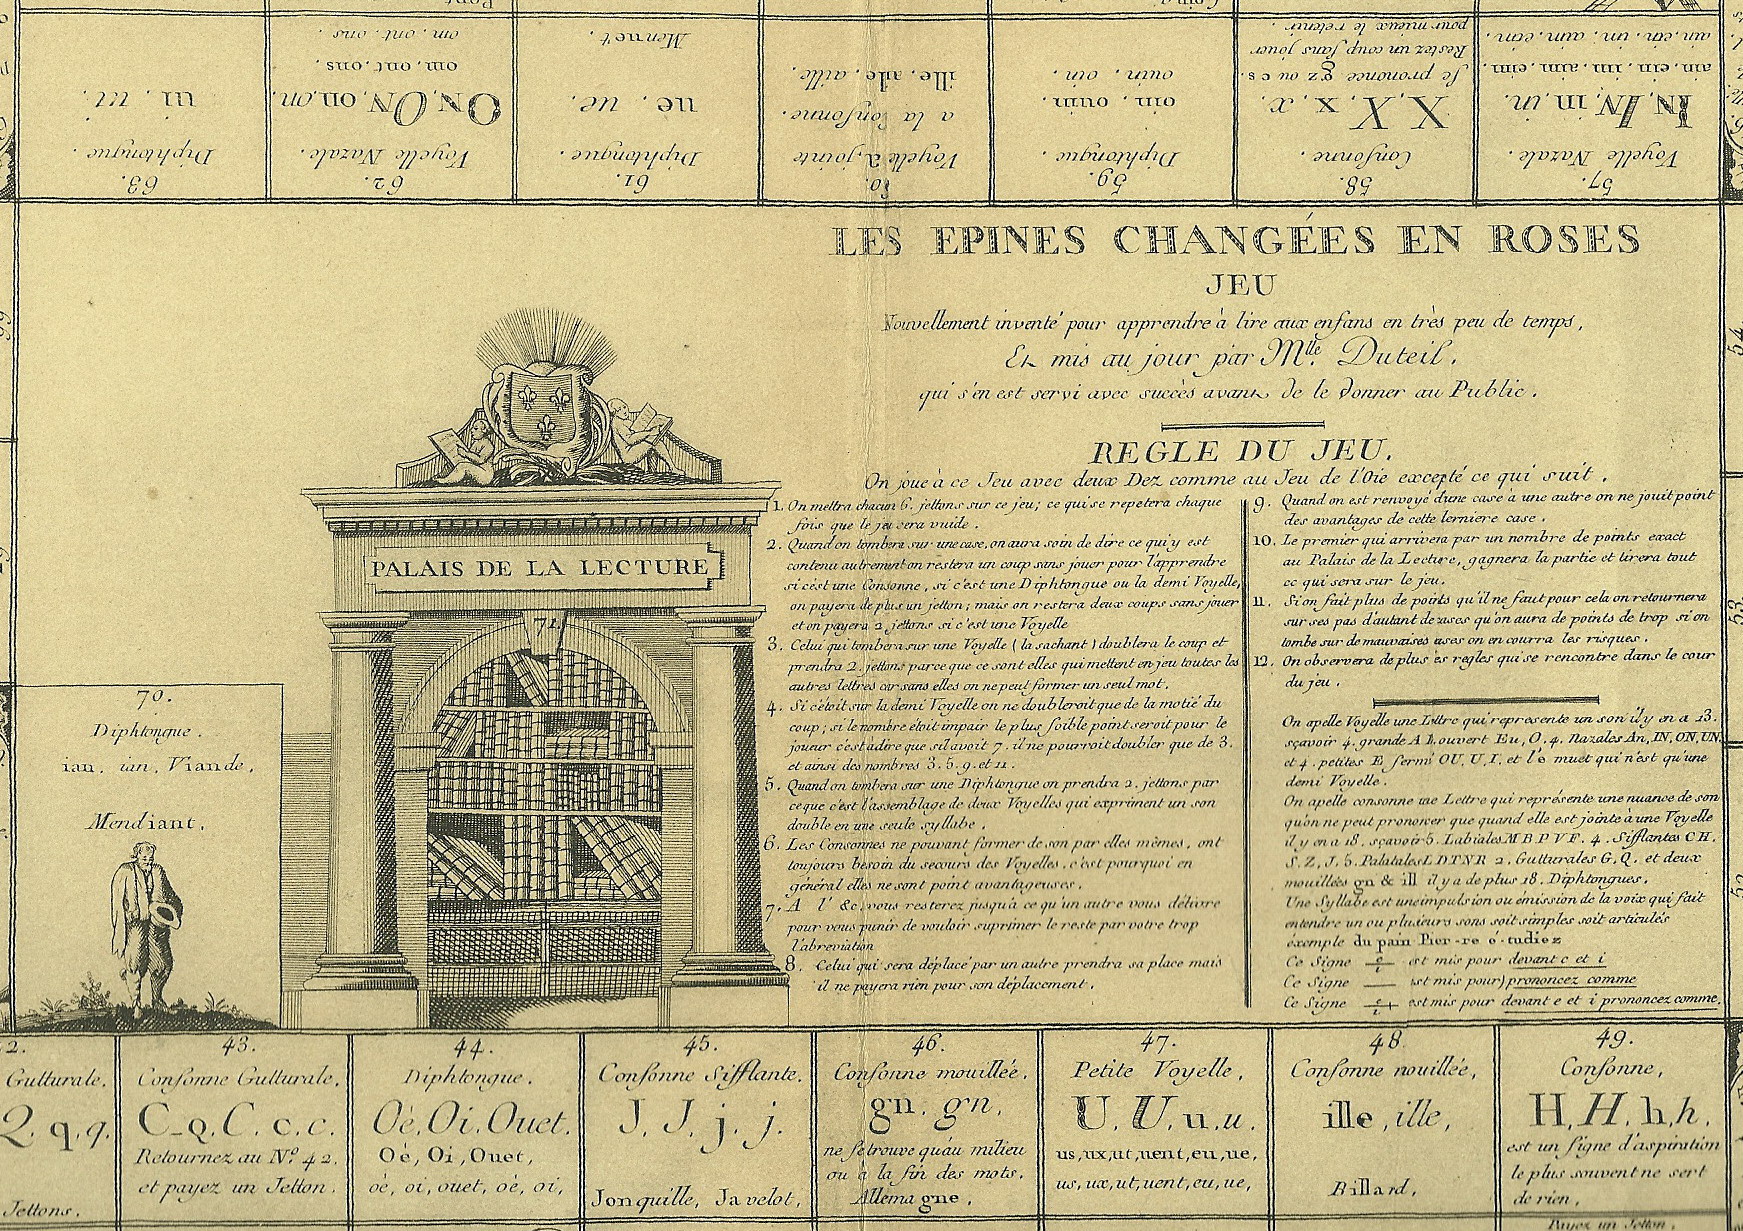 63.
Diphtongue.
ui. ui.
62.
Voyelle Nazale.
ON, ON, on, on.
om, ont, ons,
om, ont, ons.
61.
Diphtongue.
ue. ue.
Menuet.
60.
Voyelle è, jointe
a la Consonne.
ille. aile. aille.
59.
Diphtongue.
oin. ouin.
ouin. oin.
58.
Consonne.
X, X, x, x.
Se prononce gz ou cs.
Restez un coup sans jouer
pour mieux le retenir.
57.
Voyelle Nazale.
IN, IN, in, in.
ain, ein, im, aim, eim,
LES EPINES CHANGÉES EN ROSES
JEU
Nouvellement inventé pour apprendre à lire aux enfans en très peu de temps,
Et mis au jour par Mlle. Duteil,
qui s'en est servi avec succès avant de le donner au Public.
REGLE DU JEU.
On joue à ce Jeu avec deux Dez comme au Jeu de l'Oie excepté ce qui suit.
PALAIS DE LA LECTURE
71.
1. On mettra chacun 6. jettons sur ce jeu; ce qui se repetera chaque
fois que le jeu sera vuide.
2. Quand on tombera sur une case, on aura soin de dire ce qui y est
contenu autrement on restera un coup sans jouer pour l'apprendre
si c'est une Consonne, si c'est une Diphtongue ou la demi Voyelle,
on payera de plus un jetton; mais on restera deux coups sans jouer
et on payera 2. jettons si c'est une Voyelle
3. Celui qui tombera sur une Voyelle (la sachant) doublera le coup et
prendra 2. jettons parce que ce sont elles qui mettent en jeu toutes les
autres lettres car sans elles on ne peut former un seul mot.
4. Si c'étoit sur la demi Voyelle on ne doubleroit que de la motié du
coup; si le nombre étoit impair le plus foible point seroit pour le
joueur c'est à dire que s'il avoit 7. il ne pourroit doubler que de 3.
et ainsi des nombres 3. 5. 9. et 11.
5. Quand on tombera sur une Diphtongue on prendra 2. jettons par
ce que c'est l'assemblage de deux Voyelles qui expriment un son
double en une seule syllabe.
6. Les Consonnes ne pouvant former de son par elles mêmes, ont
toujours besoin du secours des Voyelles, c'est pourquoi en
général elles ne sont point avantageuses.
7. A l' &c. vous resterez jusqu'à ce qu'un autre vous délivre
pour vous punir de vouloir suprimer le reste par votre trop
l'abreviation
8. Celui qui sera déplacé par un autre prendra sa place mais
il ne payera rien pour son déplacement.
9. Quand on est renvoyé d'une case a une autre on ne jouit point
des avantages de cette lerniere case.
10. Le premier qui arrivera par un nombre de points exact
au Palais de la Lecture, gagnera la partie et tirera tout
ce qui sera sur le jeu.
11. Si on fait plus de points qu'il ne faut pour cela on retournera
sur ses pas d'autant de cases qu'on aura de points de trop si on
tombe sur de mauvaises cases on en courra les risques.
12. On observera de plus es regles qui se rencontre dans le cour
du jeu.
On apelle Voyelle une Lettre qui représente un son il y en a 13.
sçavoir 4. grande A E ouvert Eu, O, 4. Nazales An, IN, ON, UN,
et 4. petites E fermé OU, U, I, et l'e muet qui n'est qu'une
demi Voyelle.
On apelle consonne une Lettre qui représente une nuance de son
qu'on ne peut prononcer que quand elle est jointe à une Voyelle
il y en a 18. sçavoir 5. Labiales M B P V F. 4. Sifflantes CH.
S. Z. J. 5. Palatales L D T N R 2. Gutturales G, Q. et deux
mouillées gn & ill il y a de plus 18. Diphtongues.
Une Syllabe est une impulsion ou émission de la voix qui fait
entendre un ou plusieurs sons soit simples soit articulés
exemple du pain Pier-re é-tudiez
Ce Signe e/i est mis pour devant e et i
Ce Signe — est mis pour) prononcez comme
Ce Signe est mis pour devant e et i prononcez comme.
70.
Diphtongue.
ian. ian. Viande,
Mendiant,
2.
Gutturale,
Q. q. q.
Jettons.
43.
Consonne Gutturale,
C_Q. C. c. c.
Retournez au N° 42.
et payez un Jetton.
44.
Diphtongue.
Oè, Oi, Ouet.
Oè, Oi, Ouet,
oè, oi, ouet, oè, oi,
45.
Consonne Sifflante.
J, J, j. j.
Jonquille, Javelot,
46.
Consonne mouillée.
gn. gn,
ne se trouve qu'au milieu
ou à la fin des mots.
Allemagne.
47.
Petite Voyelle,
U. U. u, u.
us, ux, ut, uent, eu, ue,
us, ux, ut, uent, eu, ue,
48.
Consonne nouillée,
ille, ille,
Billard,
49.
Consonne,
H, H, h, h,
est un signe d'aspiration
le plus souvent ne sert
de rien,
Payez un Jetton.
54.
53.
52